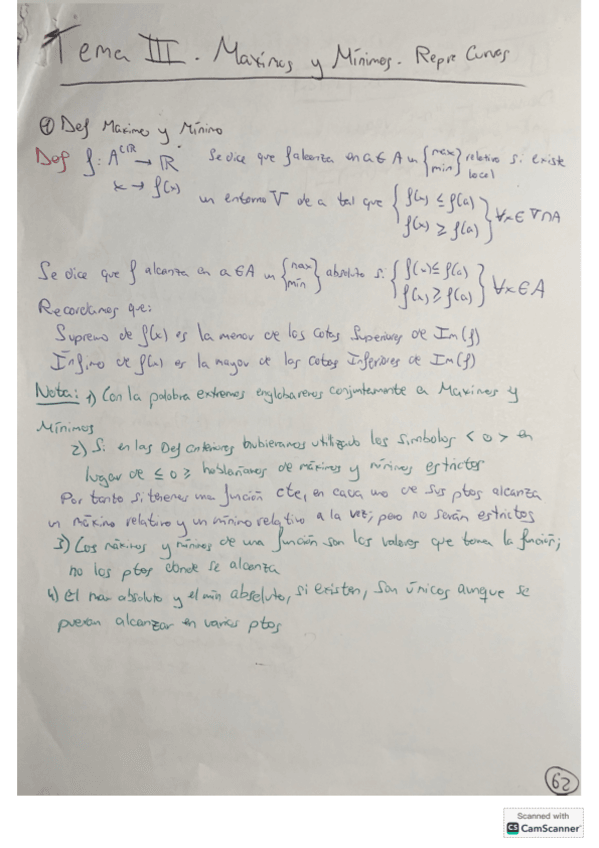 Tema III. Maximos y Mínimos. Repre Curvas
① Def Maximo y Mínimo
Def f: A⊂ℝ → ℝ Se dice que f alcanza en a ∈ A un {max min} relativo local si existe
x → f(x) un entorno V de a tal que {f(x) ≤ f(a) f(x) ≥ f(a)} ∀x ∈ V∩A
Se dice que f alcanza en a ∈ A un {max min} absoluto si {f(x) ≤ f(a) f(x) ≥ f(a)} ∀x ∈ A
Recordamos que:
Supremo de f(x) es la menor de las cotas Superiores de Im(f)
Ínfimo de f(x) es la mayor de las cotas Inferiores de Im(f)
Nota: 1) Con la palabra extremos englobaremos conjuntamente a Maximos y
Mínimos
2) Si en las Def anteriores hubieramos utilizado los simbolos < o > en
lugar de ≤ o ≥ hablaríamos de máximos y mínimos estrictos
Por tanto si tenemos una función cte, en cada uno de sus ptos alcanza
un máximo relativo y un mínimo relativo a la vez; pero no serán estrictos
3) Los máximos y mínimos de una función son los valores que toma la función;
no los ptos donde se alcanza
4) el max absoluto y el min absoluto, si existen, son únicos aunque se
puedan alcanzar en varios ptos
62
Scanned with
CS CamScanner